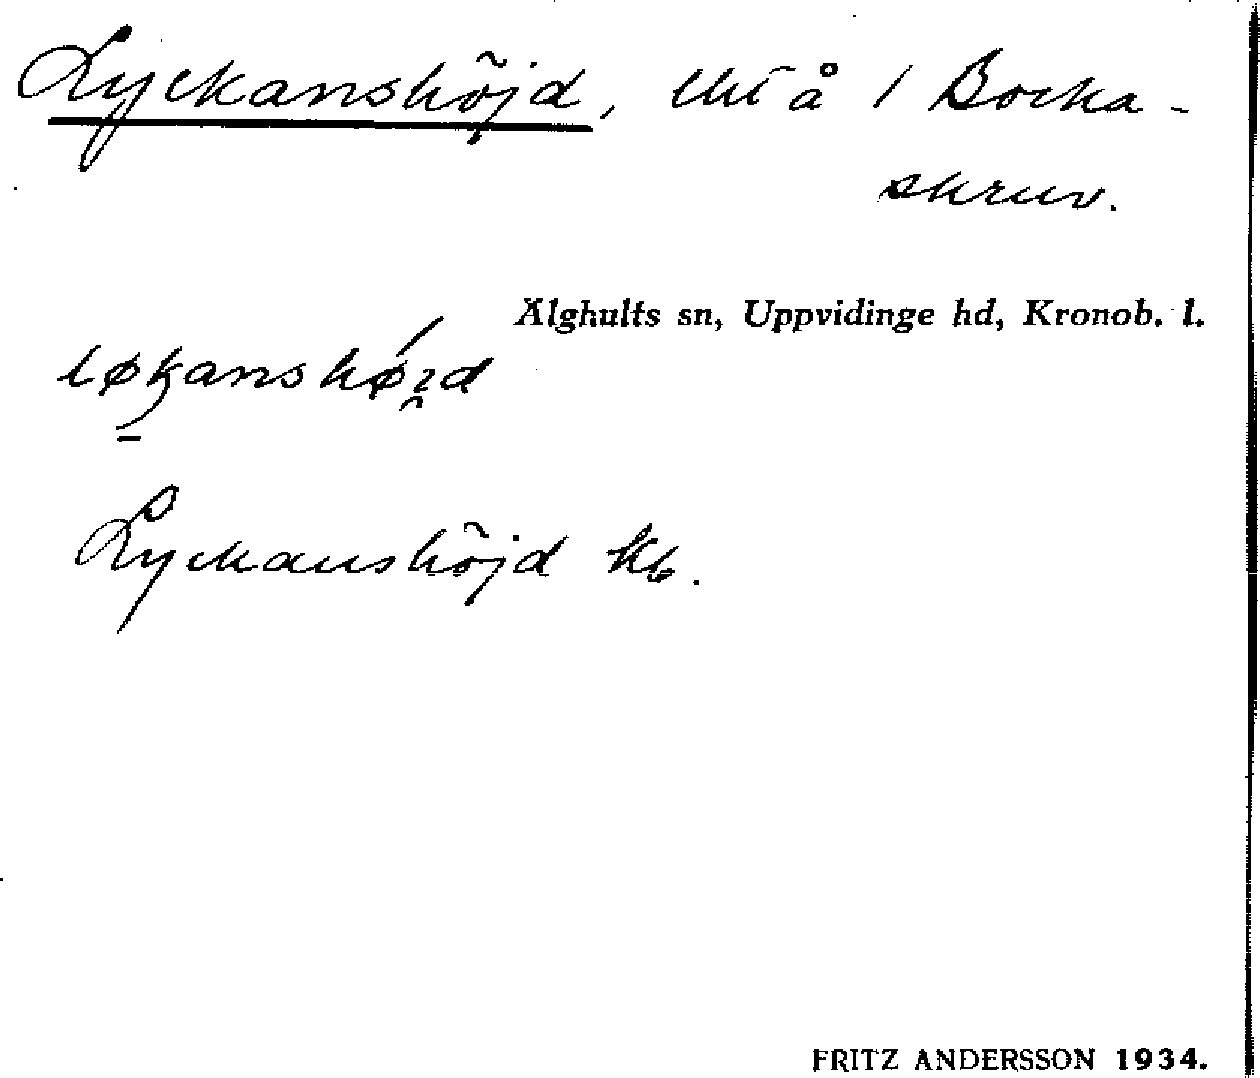 Lyckanshöjd, lht å 1 Bocka-
skruv.
Älghults sn, Uppvidinge hd, Kronob. l.
Lyckanshöjd kb.
FRITZ ANDERSSON 1934.